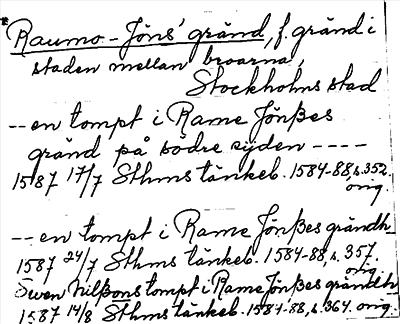 *Raumo-Jöns' gränd, f. gränd i
staden mellan broarna,
Stockholms stad
-- en tompt i Rame Jönßes
gränd på södre syden ----
1587 17/7 Sthms tänkeb. 1584-88, s. 352.
orig.
-- en tompt i Rame Jönßes grändh
1587 24/7 Sthms tänkeb. 1584-88, s. 357.
orig.
Swen Nilßons tompt i Rame Jönßes grändh
1587 14/8 Sthms tänkeb. 1584-88, s. 364. orig.